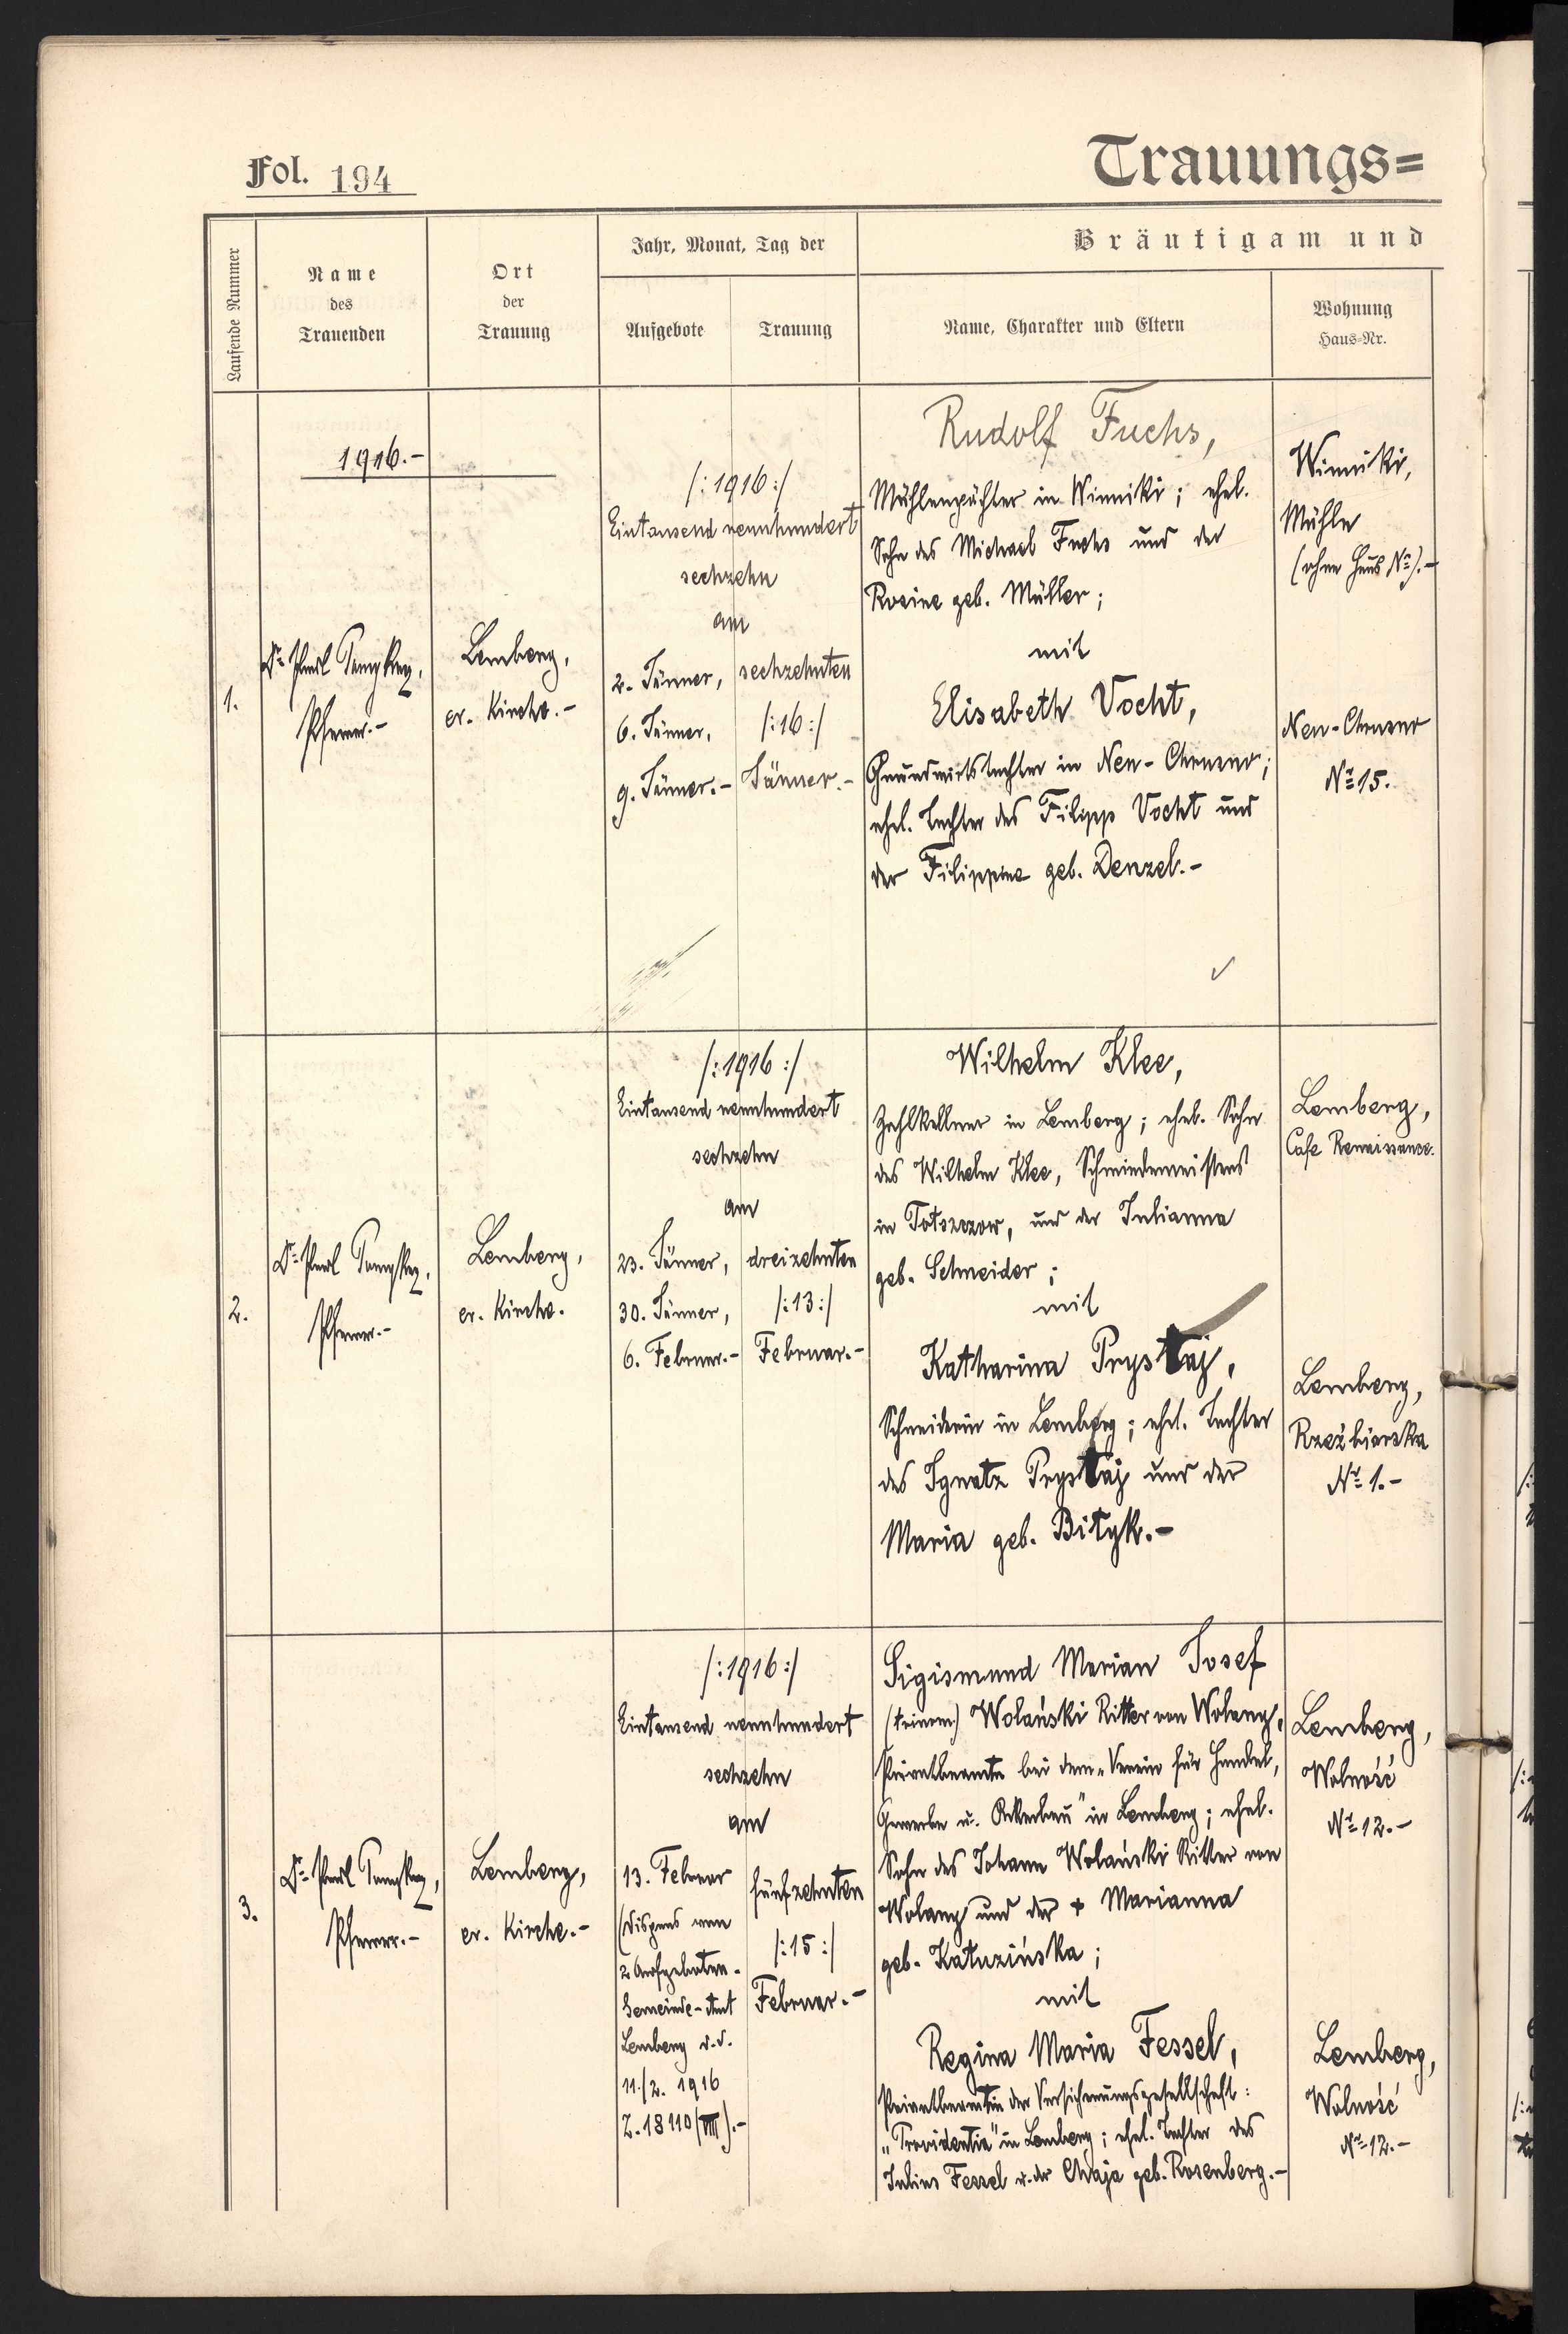 Fol. 194
Trauungs=
Laufende Nummer
Name
des
Trauenden
Ort
der
Trauung
Jahr, Monat, Tag der
Aufgebote
Trauung
Bräutigam und
Name, Charakter und Eltern
Wohnung
Haus=Nr.
1916.-
1.
Pfarrer.-
Lemberg,
ev. Kirche.-
/:1916:/
Eintausend neunhundert
sechzehn
am
2. Jänner,
6. Jänner,
9. Jänner.-
sechzehnten
/:16:/
Jänner.-
Rudolf Fuchs,
Mühlenpächter in Winniki; ehel.
Sohn des Michael Fuchs und der
Rosine geb. Müller;
mit
Elisabeth Vocht,
Grundwirtstochter in Neu-Chrusno;
ehel. Tochter des Filipp Vocht und
der Filippine geb. Denzel.-
Winniki,
Mühle
(ohne Haus Nr.).-
Neu-Chrusno
Nr. 15.
2.
Pfarrer.-
Lemberg,
ev. Kirche.
/:1916:/
Eintausend neunhundert
sechzehn
am
23. Jänner,
30. Jänner,
6. Februar.-
dreizehnten
/:13:/
Februar.-
Wilhelm Klee,
Zahlkellner in Lemberg; ehel. Sohn
des Wilhelm Klee, Schmiedemeisters
in Tołszczow, und der Julianna
geb. Schneider;
mit
Katharina Prystaj,
Schneiderin in Lemberg; ehel. Tochter
des Ignatz Prystaj und der
Maria geb. Bityk.-
Lemberg,
Cafe Renaissance.
Lemberg,
Rzeźbiarska
Nr. 1.-
3.
Pfarrer.-
Lemberg,
ev. Kirche.-
/:1916:/
Eintausend neunhundert
sechzehn
am
13. Februar
(Dispens von
2 Aufgeboten.
Gemeinde-Amt
Lemberg v. d.
11./2. 1916
Z. 18110/VIII).-
fünfzehnten
/:15:/
Februar.-
Sigismund Marian Josef
(trinom.) Wolański Ritter von Wolany,
Privatbeamte bei dem „Verein für Handel,
Gewerbe u. Ackerbau" in Lemberg; ehel.
Sohn des Johann Wolański Ritter von
Wolany und der + Marianna
geb. Katuzińska;
mit
Regina Maria Fessel,
Privatbeamtin der Versicherungsgesellschaft:
„Providentia" in Lemberg; ehel. Tochter des
Julius Fessel u. der Chaja geb. Rosenberg.-
Lemberg,
Wolność
Nr. 12.-
Lemberg,
Wolność
Nr. 12.-